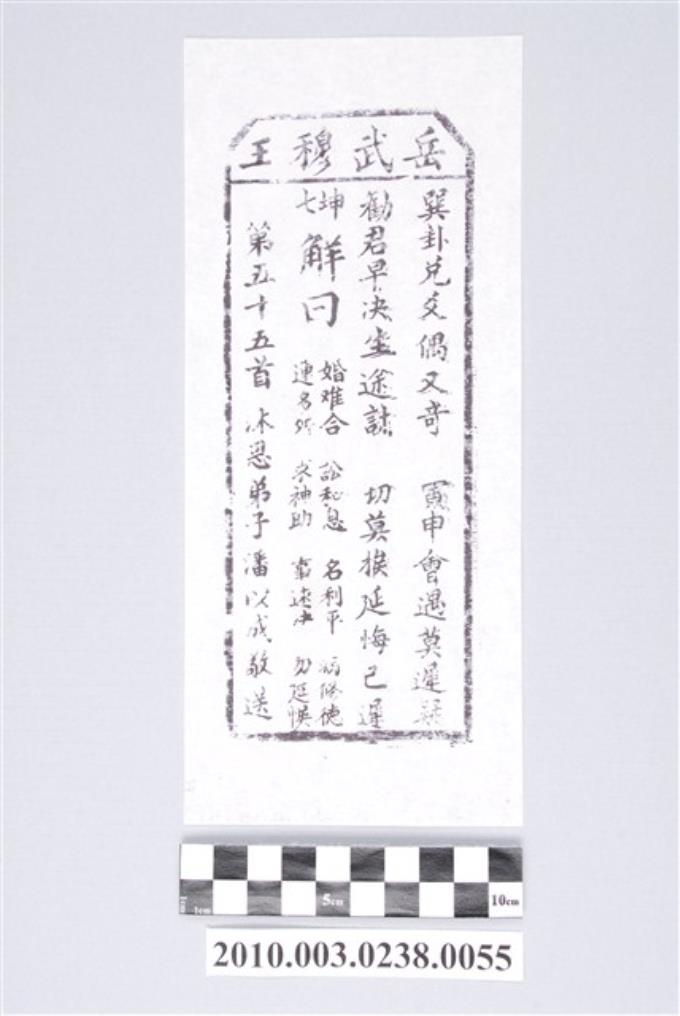 岳武穆王
巽卦兌爻偶又奇 寅申會遇莫遲疑
勸君早决坐途誌 切莫挨延悔已遲
坤七
解曰
婚难合 訟和息 名利平 病修德
求神助 事速决 勿延悞
第五十五首 沐恩弟子潘以成敬送
1cm 5cm 10cm
2010.003.0238.0055